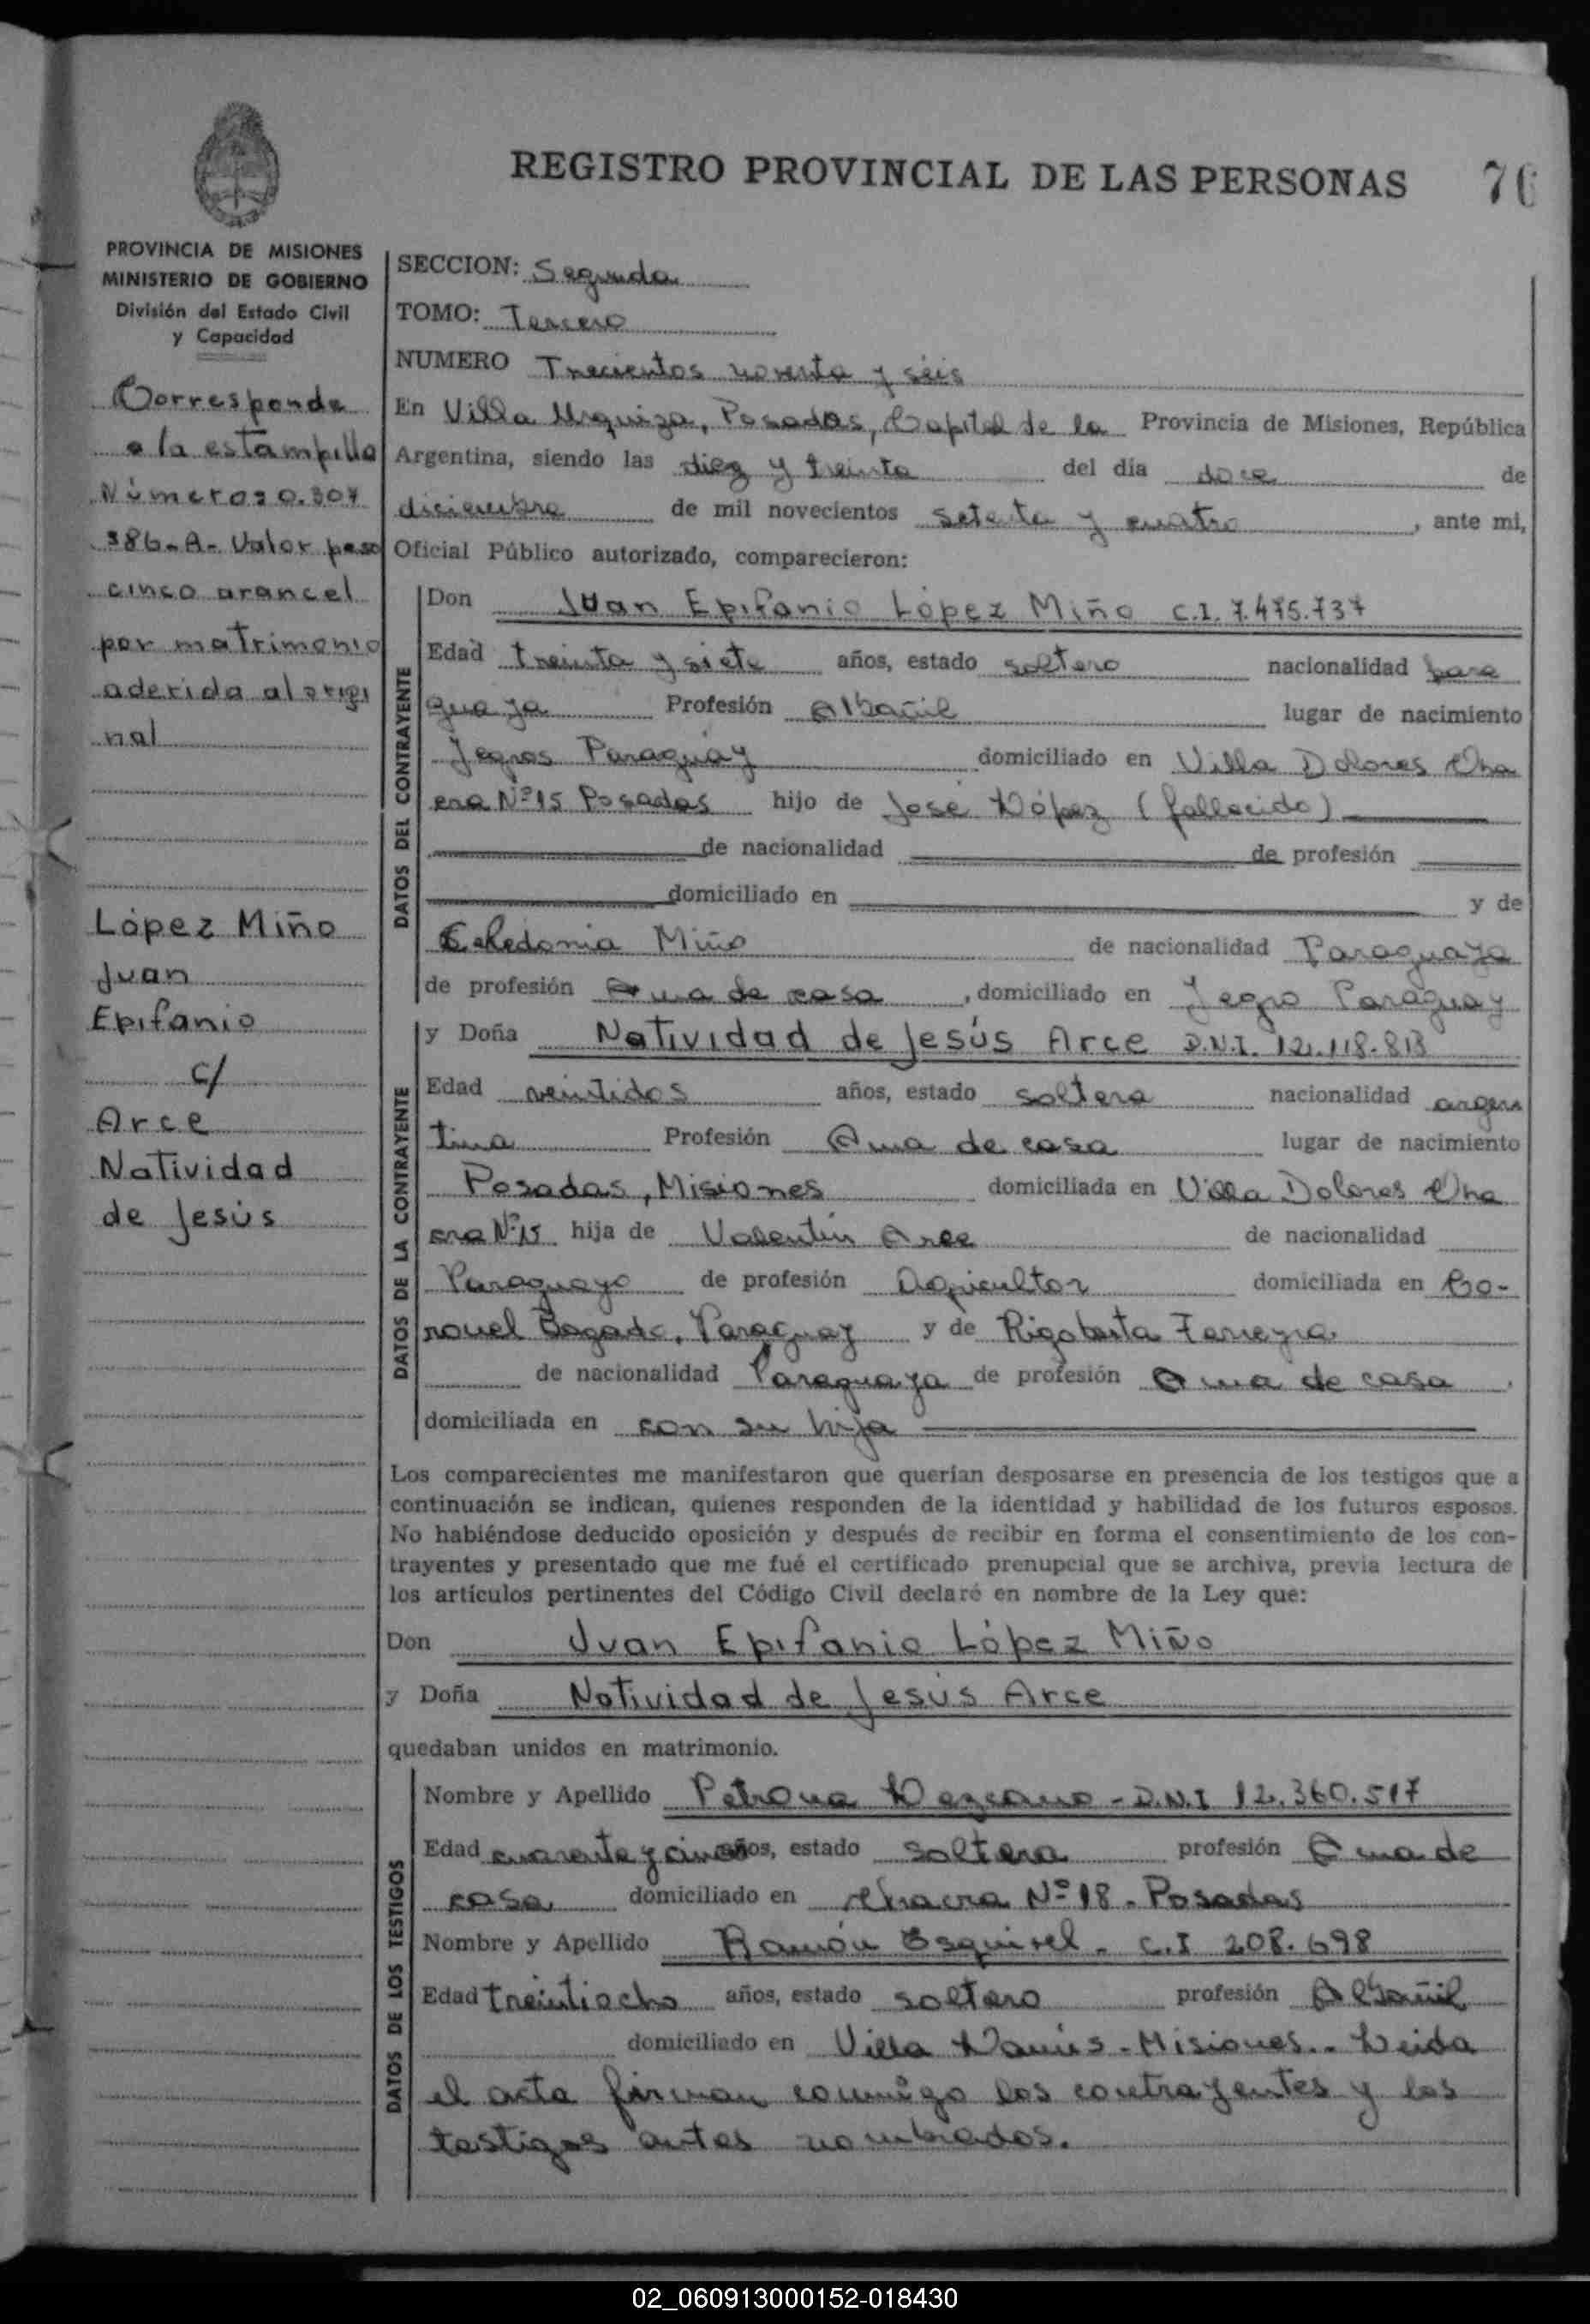 REGISTRO PROVINCIAL DE LAS PERSONAS 76
PROVINCIA DE MISIONES
MINISTERIO DE GOBIERNO
División del Estado Civil
y Capacidad
Corresponde
a la estampilla
Número 20.307
386-A- Valor peso
cinco arancel
por matrimonio
aderida al origi
nal
López Miño
Juan
Epifanio
c/
Arce
Natividad
de Jesús
SECCION: Segunda
TOMO: Tercero
NUMERO Trecientos noventa y séis
En Villa Urquiza, Posadas, Capital de la Provincia de Misiones, República
Argentina, siendo las diez y treinta del día doce de
diciembre de mil novecientos setenta y cuatro, ante mi,
Oficial Público autorizado, comparecieron:
DATOS DEL CONTRAYENTE
Don Juan Epifanio López Miño C.I. 7.475.737
Edad treinta y siete años, estado soltero nacionalidad para
guaya Profesión Albañil lugar de nacimiento
Yegros Paraguay domiciliado en Villa Dolores Cha
cra Nº 15 Posadas hijo de José López (fallecido)
de nacionalidad de profesión
domiciliado en y de
Celedonia Miño de nacionalidad Paraguaya
de profesión Ama de casa, domiciliado en Yegro Paraguay
DATOS DE LA CONTRAYENTE
y Doña Natividad de Jesús Arce D.N.I. 12.118.813
Edad veintidos años, estado soltera nacionalidad argen
tina Profesión Ama de casa lugar de nacimiento
Posadas, Misiones domiciliada en Villa Dolores Cha
cra Nº 15 hija de Valentín Arce de nacionalidad
Paraguayo de profesión Agricultor domiciliada en Co-
ronel Bogado, Paraguay y de Rigoberta Ferreyra
de nacionalidad Paraguaya de profesión Ama de casa
domiciliada en con su hija
Los comparecientes me manifestaron que querían desposarse en presencia de los testigos que a
continuación se indican, quienes responden de la identidad y habilidad de los futuros esposos.
No habiéndose deducido oposición y después de recibir en forma el consentimiento de los con-
trayentes y presentado que me fué el certificado prenupcial que se archiva, previa lectura de
los artículos pertinentes del Código Civil declaré en nombre de la Ley que:
Don Juan Epifanio López Miño
y Doña Natividad de Jesús Arce
quedaban unidos en matrimonio.
DATOS DE LOS TESTIGOS
Nombre y Apellido Petrona Lezcano - D.N.I 12.360.517
Edad cuarenta y cinco años, estado soltera profesión Ama de
casa domiciliado en chacra Nº 18 - Posadas
Nombre y Apellido Ramón Esquivel - C.I 208.698
Edad treintiocho años, estado soltero profesión Albañil
domiciliado en Villa Lanús - Misiones.- Leida
el acta firman conmigo los contrayentes y los
testigos antes nombrados.
02_060913000152-018430